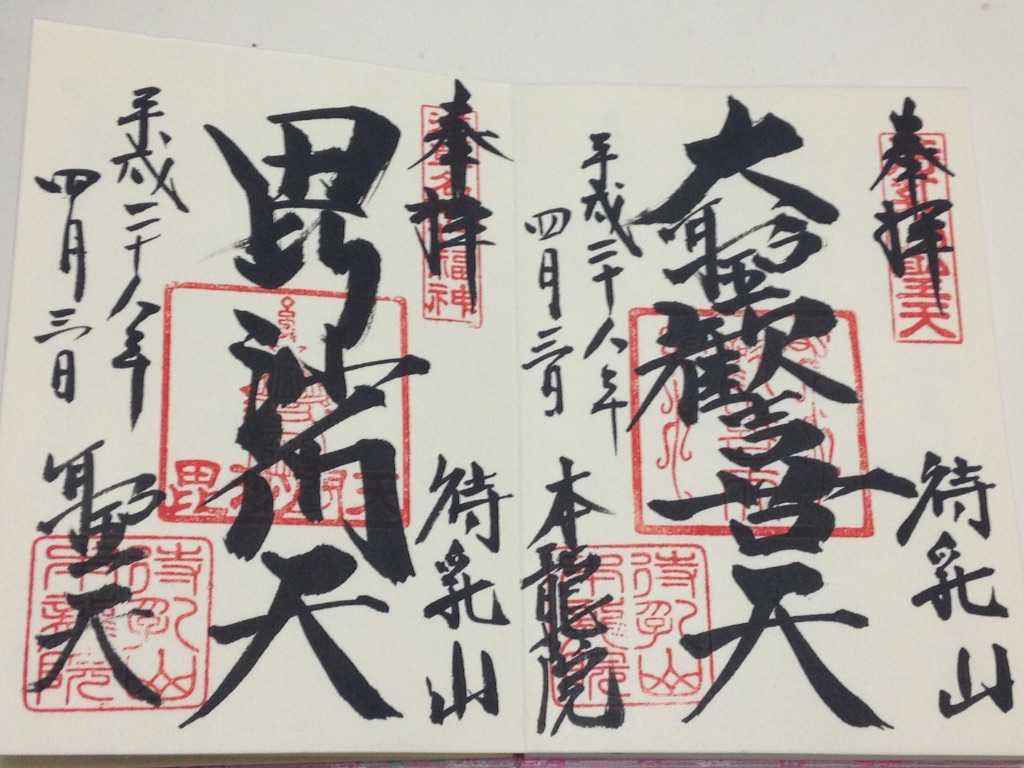 奉拝
待乳山
大聖歓喜天
平成二十八年
四月三日
本龍院
奉拝
待乳山
毘沙門天
平成二十八年
四月三日
聖天
待乳山
本龍院
待乳山
本龍院